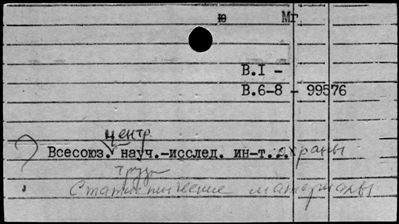 ю Мг.
В.I -
В.6-8 - 99576
центр.
Всесоюз. науч.-исслед. ин-т... охраны
труда
Статистические материалы